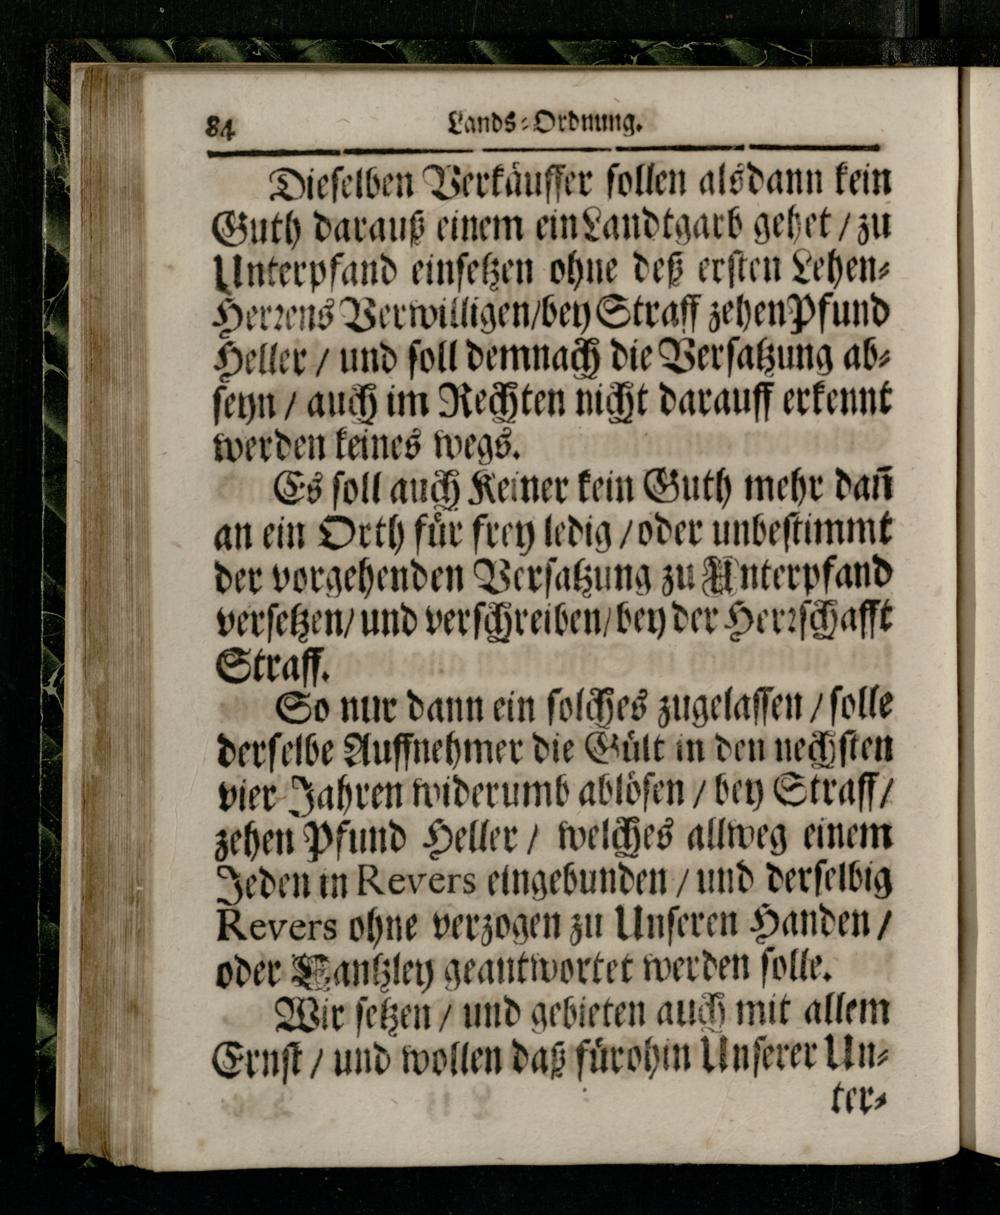 84 Lands-Ordnung.
Dieselben Verkäuffer sollen alsdann kein
Guth darauß einem ein Landtgarb gehet / zu
Unterpfand einsetzen ohne deß ersten Lehen-
Herrens Verwilligen/bey Straff zehen Pfund
Heller / und soll demnach die Versatzung ab-
seyn / auch im Rechten nicht darauff erkennt
werden keines wegs.
Es soll auch Keiner kein Guth mehr dañ
an ein Orth für frey ledig / oder unbestimmt
der vorgehenden Versatzung zu Unterpfand
versetzen/ und verschreiben/ bey der Herrschafft
Straff.
So nur dann ein solches zugelassen / solle
derselbe Auffnehmer die Gült in den nechsten
vier Jahren widerumb ablösen / bey Straff /
zehen Pfund Heller / welches allweg einem
Jeden in Revers eingebunden / und derselbig
Revers ohne verzogen zu Unseren Handen /
oder Cantzley geantwortet werden solle.
Wir setzen / und gebieten auch mit allem
Ernst / und wollen daß fürohin Unserer Un-
ter-